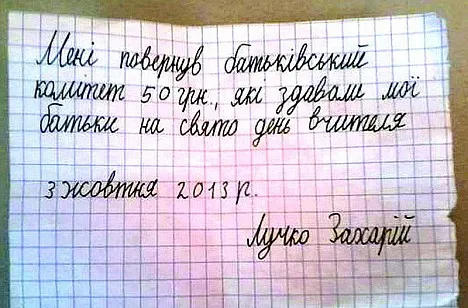 Мені повернув батьківський
комітет 50 грн., які здавали мої
батьки на свято день вчителя
3 жовтня 2013 р.
Лучко Захарій